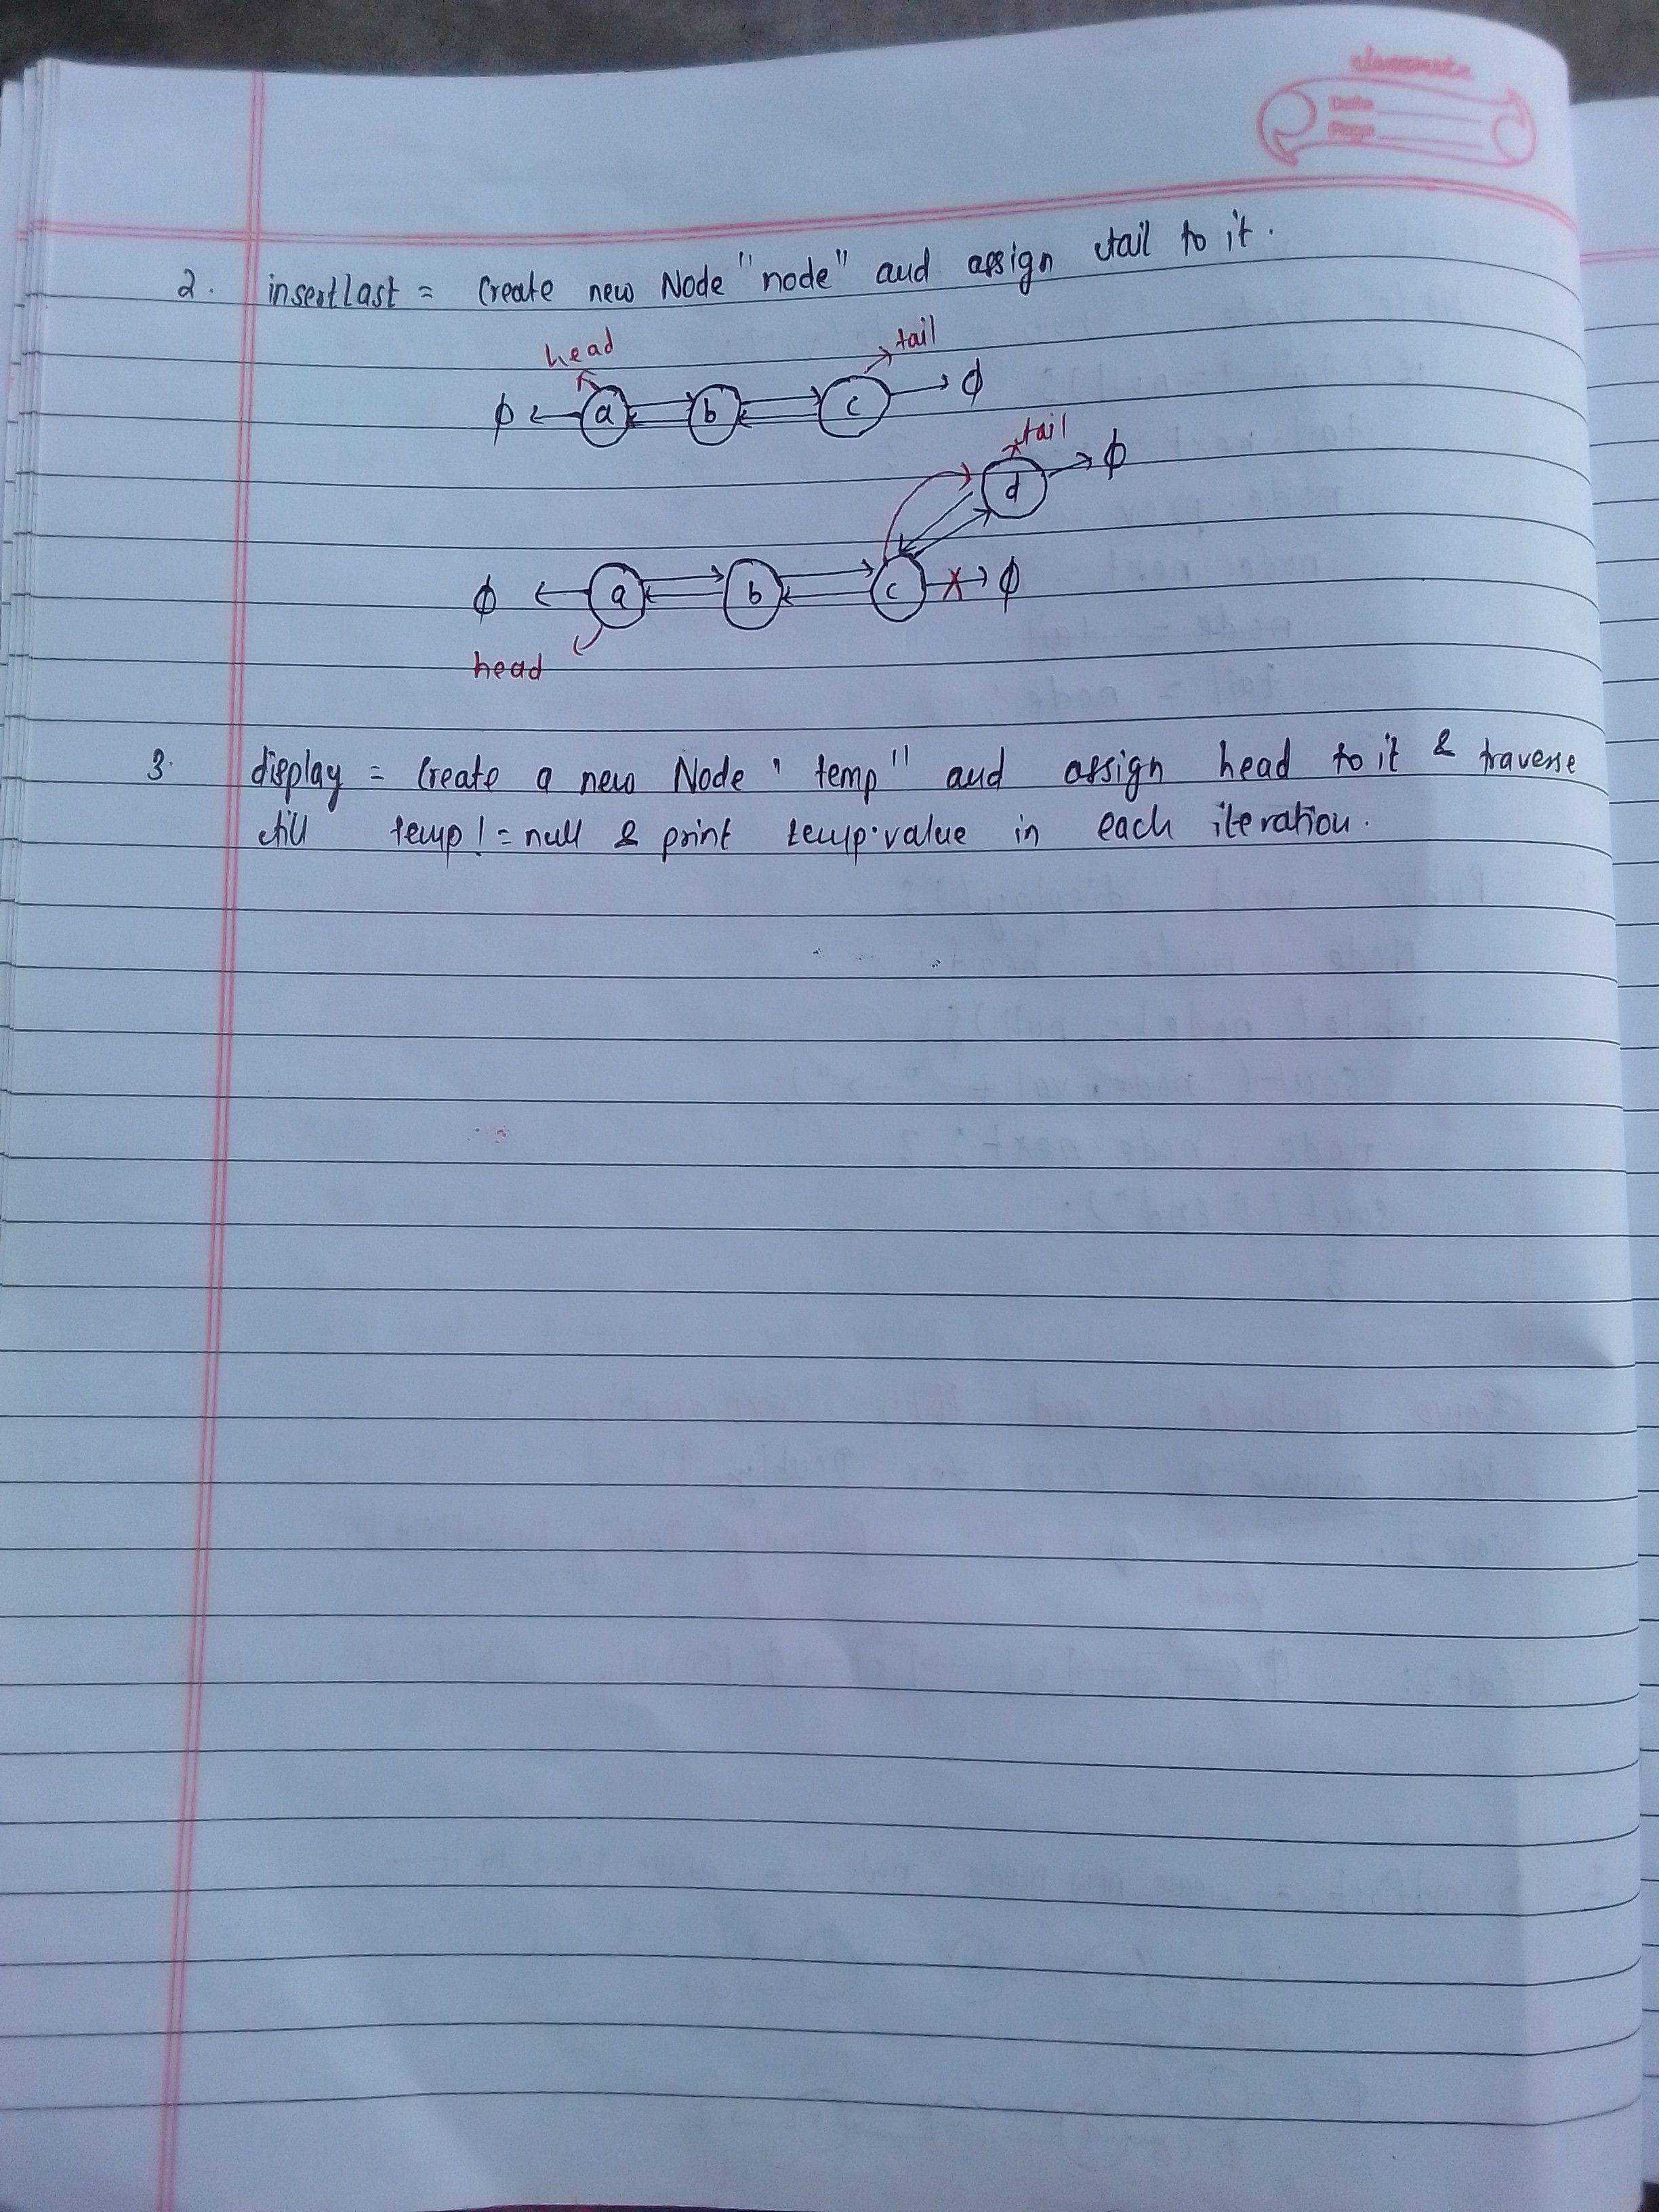 classmate
Date
Page
2. insertlast = Create new Node "node" and assign tail to it.
head
tail
ϕ a b c ϕ
tail
d ϕ
ϕ a b c x ϕ
head
3. display = Create a new Node " temp" and assign head to it & traverse
till temp != null & print temp.value in each iteration.